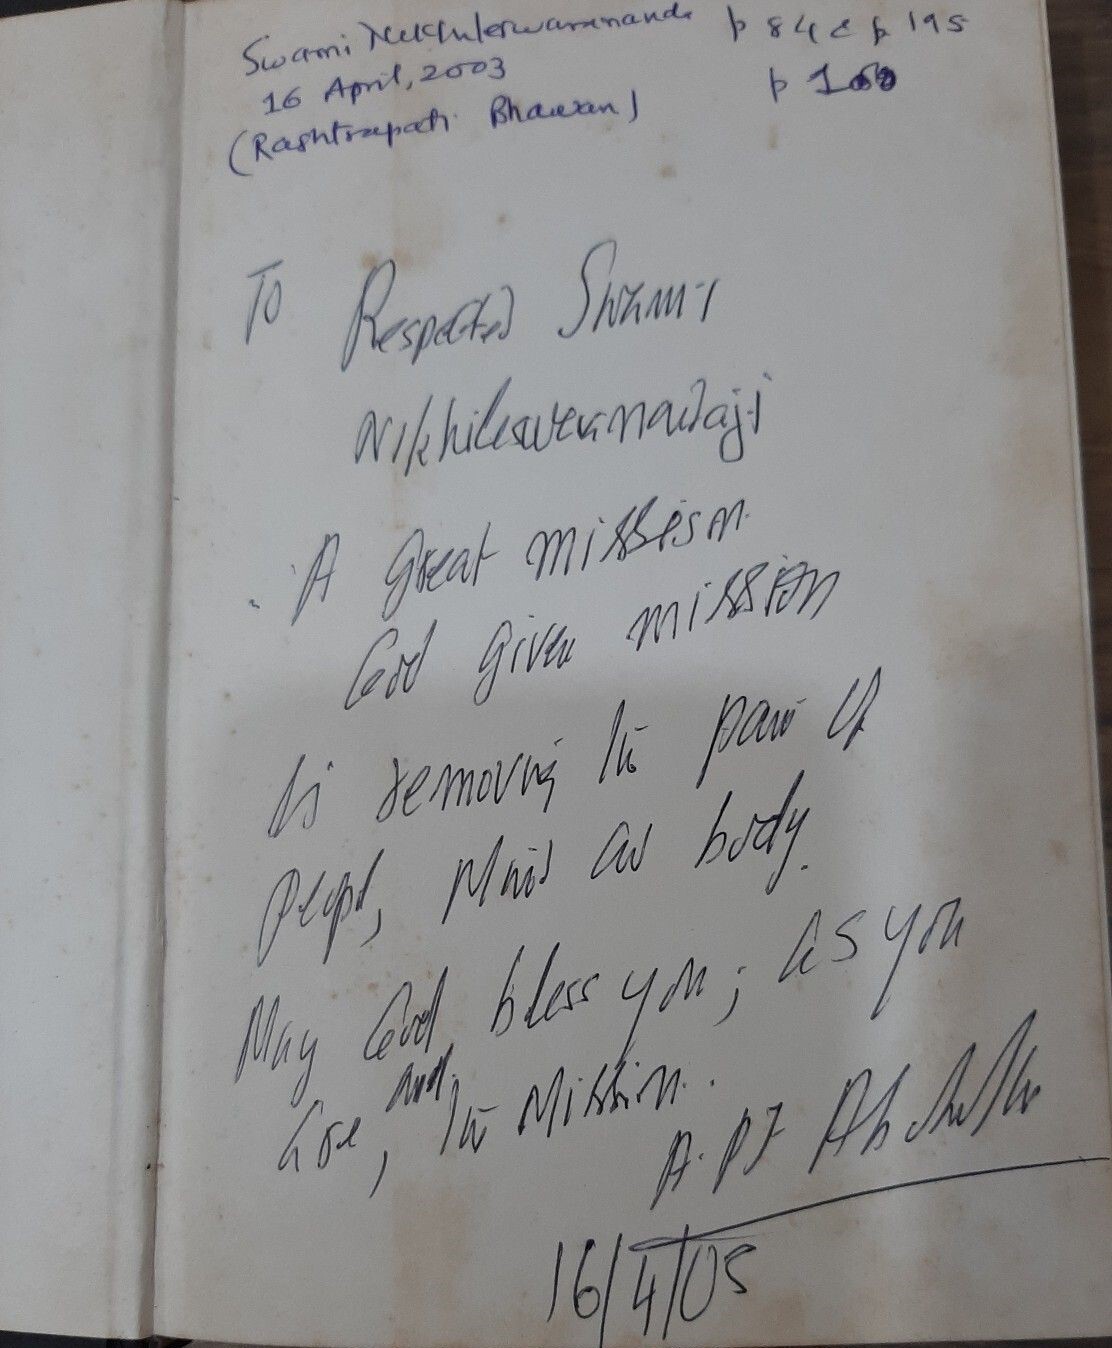 Swami Nikhileswarananda p 84 & p 195
16 April, 2003 p 100
(Rashtrapati Bhawan)
To Respected Swami
Nikhileswaranandaji
A great mission
God given mission
is removing the pain of
people, Mind as body.
May God bless you; as you
are, and the Mission.
A. P J Abdul
16/4/03